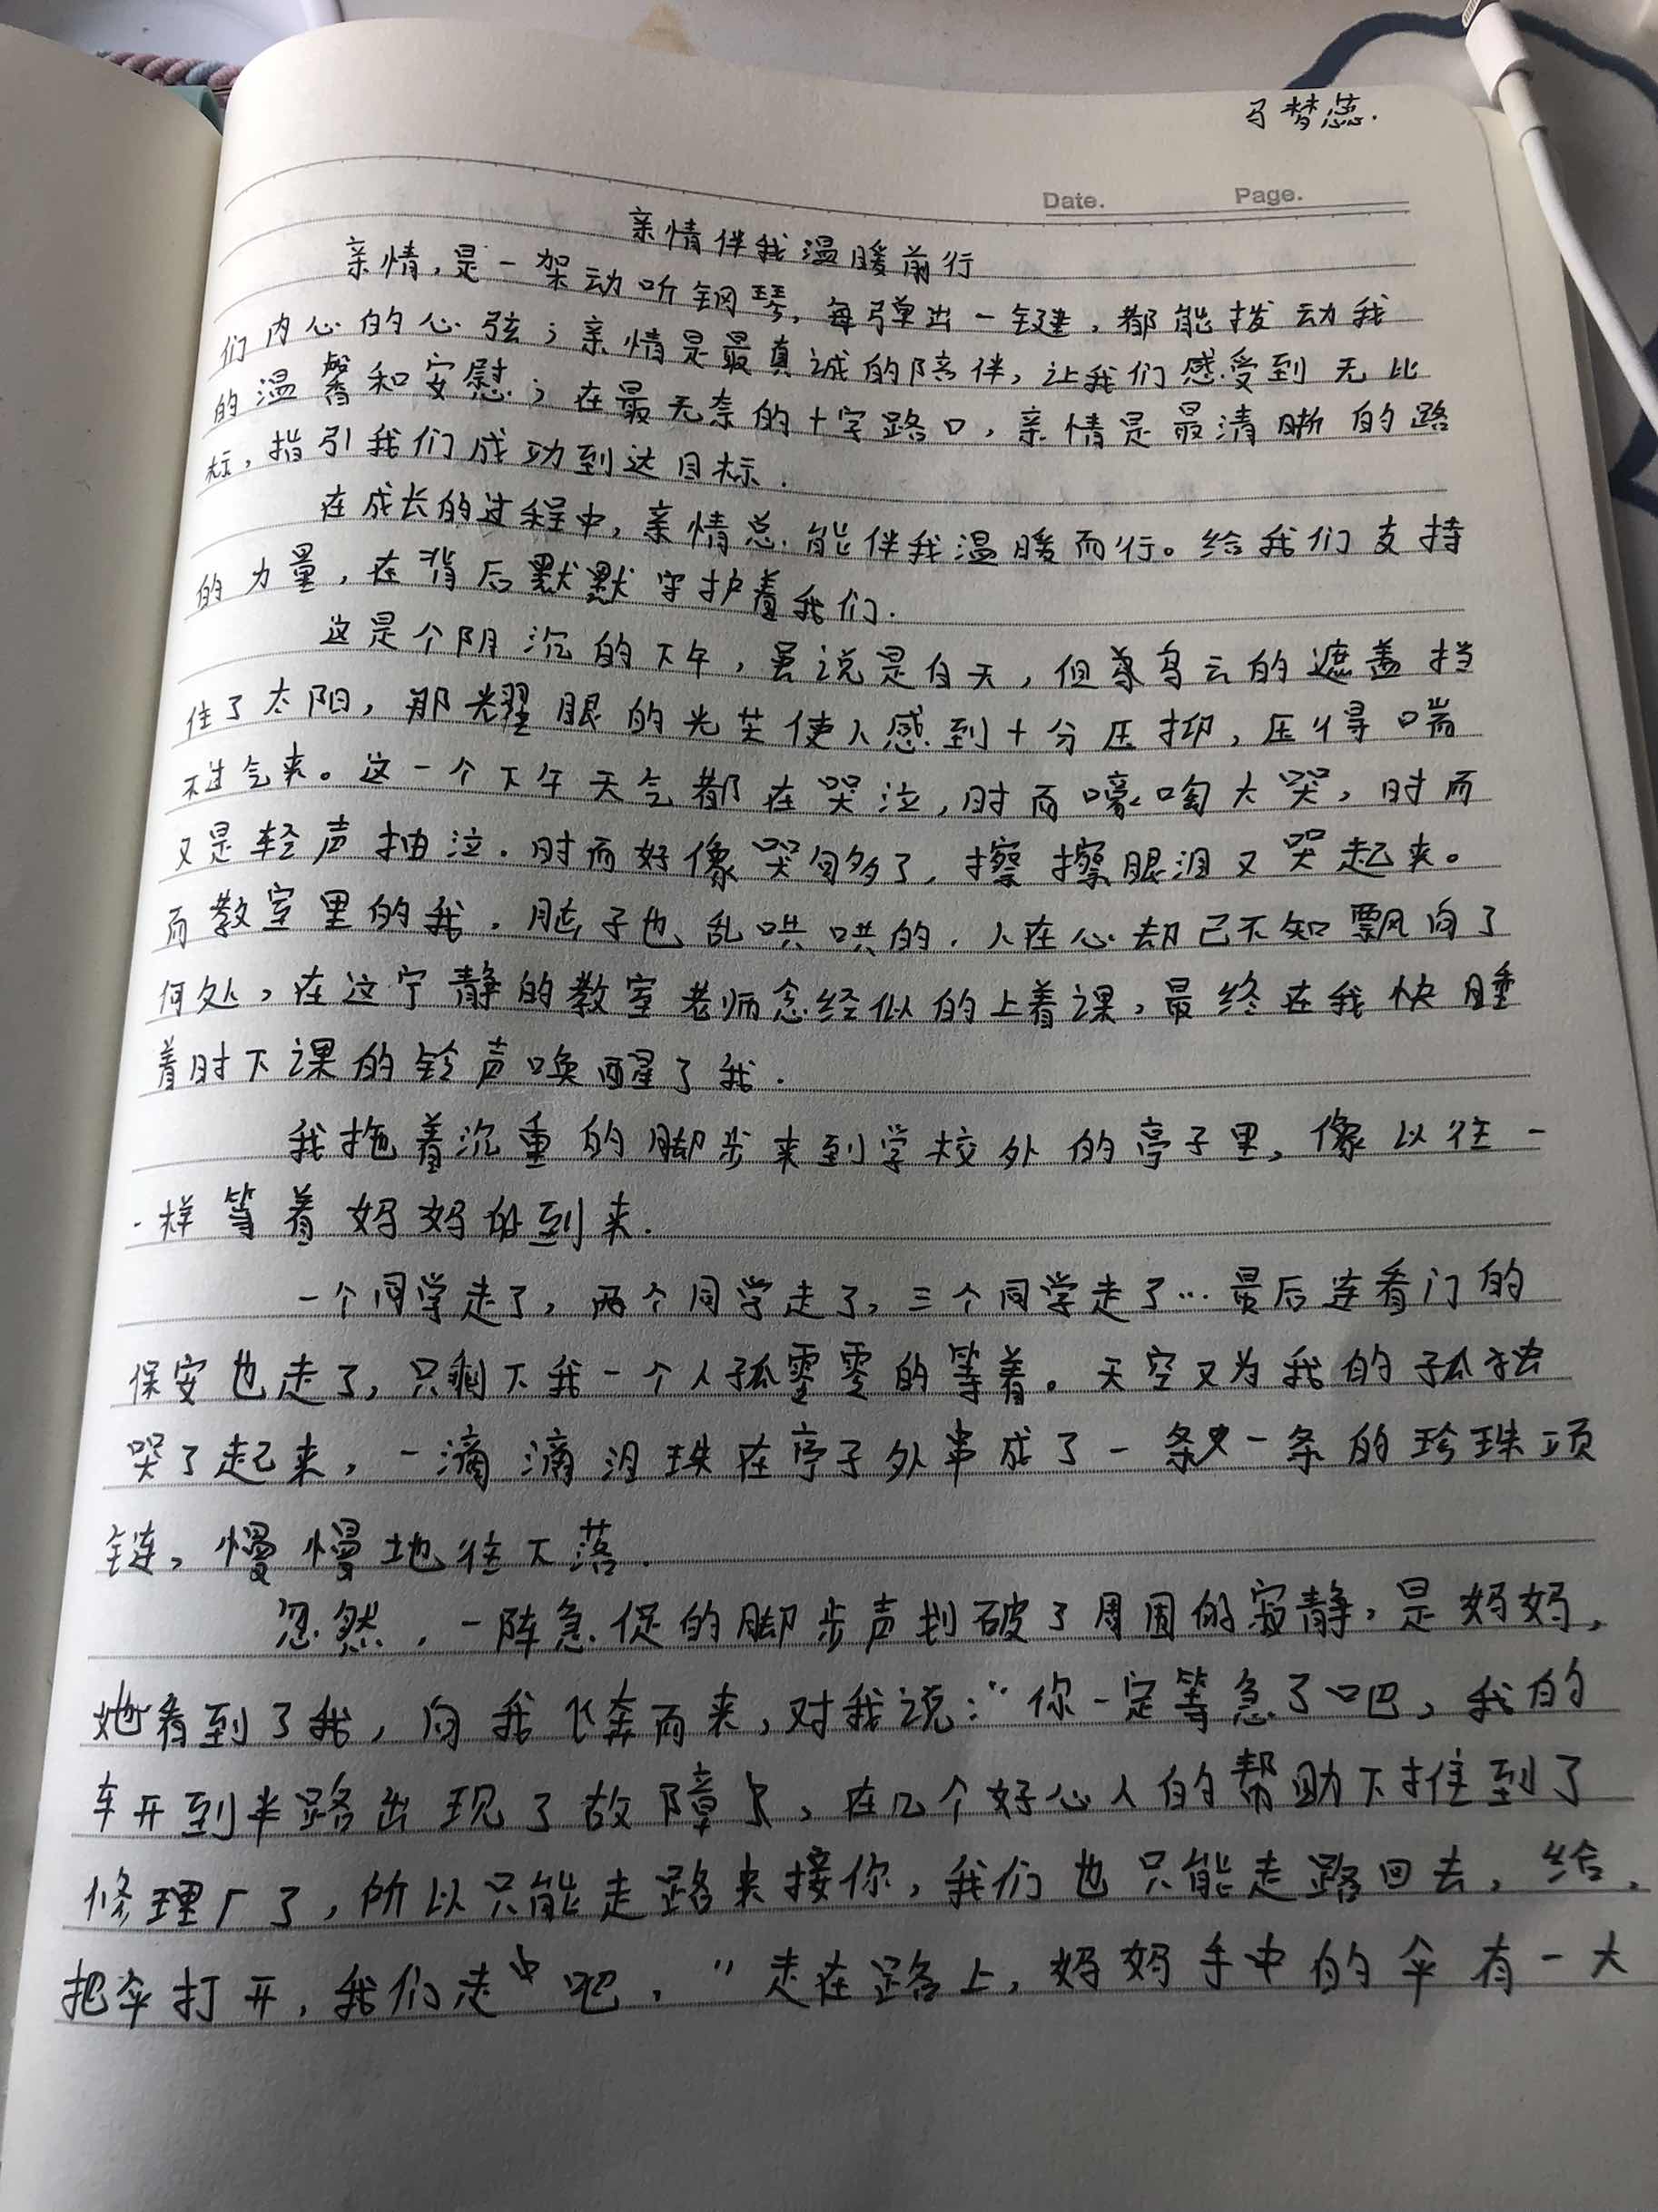 马梦蕊.
Date. Page.
亲情伴我温暖前行
亲情,是一架动听钢琴,每弹出一键,都能拨动我
们内心的心弦;亲情是最真诚的陪伴,让我们感受到无比
的温馨和安慰;在最无奈的十字路口,亲情是最清晰的路
标,指引我们成功到达目标.
在成长的过程中,亲情总能伴我温暖而行。给我们支持
的力量,在背后默默守护着我们.
这是个阴沉的下午,虽说是白天,但乌云的遮盖挡
住了太阳,那耀眼的光芒使人感到十分压抑,压得喘
不过气来。这一个下午天气都在哭泣,时而嚎啕大哭,时而
又是轻声抽泣.时而好像哭匀多了,擦擦眼泪又哭起来。
而教室里的我,脑子也乱哄哄的.人在心却已不知飘向了
何处,在这宁静的教室老师念经似的上着课,最终在我快睡
着时下课的铃声唤醒了我.
我拖着沉重的脚步来到学校外的亭子里,像以往一
样等着妈妈的到来.
一个同学走了,两个同学走了,三个同学走了…最后连看门的
保安也走了,只剩下我一个人孤零零的等着。天空又为我的孤独
哭了起来,一滴滴泪珠在亭子外串成了一条又一条的珍珠项
链,慢慢地往下落.
忽然,一阵急促的脚步声划破了周围的寂静,是妈妈,
她看到了我,向我飞奔而来,对我说:“你一定等急了吧,我的
车开到半路出现了故障,在几个好心人的帮助下推到了
修理厂了,所以只能走路来接你,我们也只能走路回去,给,
把伞打开,我们走吧.”走在路上,妈妈手中的伞有一大